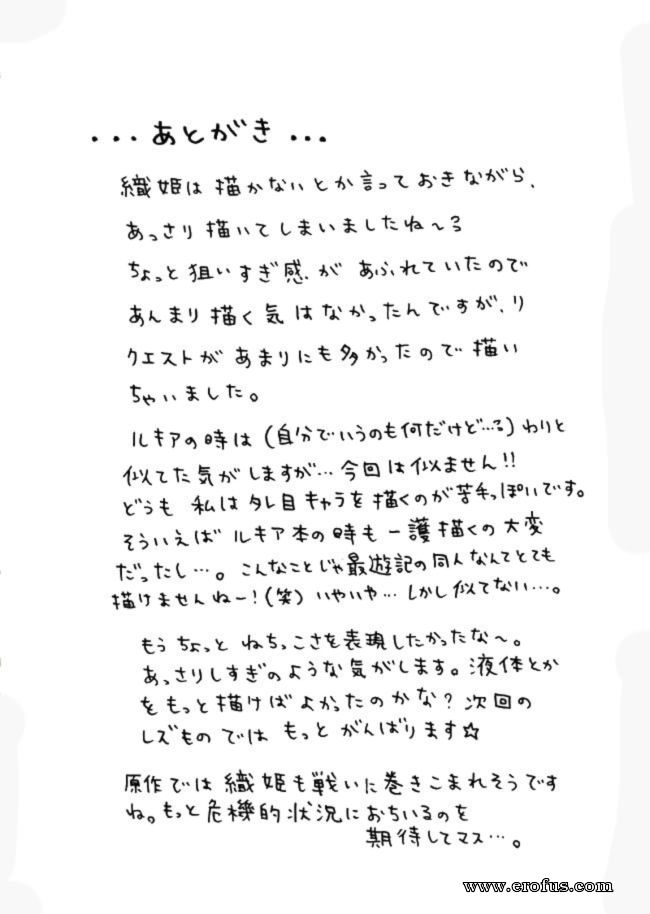 ・・・あとがき・・・
織姫は描かないとか言っておきながら、
あっさり描いてしまいましたね〜る
ちょっと狙いすぎ感があふれていたので
あんまり描く気はなかったんですが、リ
クエストがあまりにも多かったので描い
ちゃいました。
ルキアの時は(自分でいうのも何だけど…る)わりと
似てた気がしますが…今回は似ません!!
どうも私はタレ目キャラを描くのが苦手っぽいです。
そういえばルキア本の時も一護描くの大変
だったし…。こんなことじゃ最遊記の同人なんてとても
描けませんねー!(笑)いやいや…しかし似てない…。
もうちょっとねちっこさを表現したかったな〜。
あっさりしすぎのような気がします。液体とか
をもっと描けばよかったのかな?次回の
レズものではもっとがんばります☆
原作では織姫も戦いに巻きこまれそうです
ね。もっと危機的状況におちいるのを
期待してマス…。
www.erofus.com